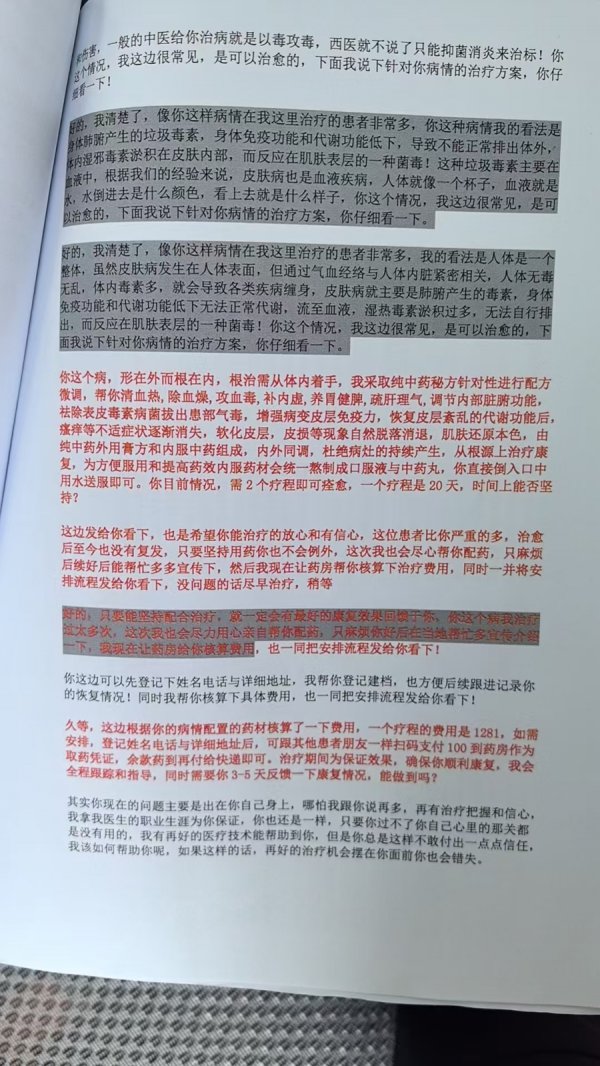 和伤害，一般的中医给你治病就是以毒攻毒，西医就不说了只能抑菌消炎来治标！你
这个情况，我这边很常见，是可以治愈的，下面我说下针对你病情的治疗方案，你仔
细看一下！
好的，我清楚了，像你这样病情在我这里治疗的患者非常多，你这种病情我的看法是
身体肺腑产生的垃圾毒素，身体免疫功能和代谢功能低下，导致不能正常排出体外，
体内湿邪毒素淤积在皮肤内部，而反应在肌肤表层的一种菌毒！这种垃圾毒素主要在
血液中，根据我们的经验来说，皮肤病也是血液疾病，人体就像一个杯子，血液就是
水，水倒进去是什么颜色，看上去就是什么样子，你这个情况，我这边很常见，是可
以治愈的，下面我说下针对你病情的治疗方案，你仔细看一下。
好的，我清楚了，像你这样病情在我这里治疗的患者非常多，我的看法是人体是一个
整体，虽然皮肤病发生在人体表面，但通过气血经络与人体内脏紧密相关，人体无毒
无乱，体内毒素多，就会导致各类疾病缠身，皮肤病就主要是肺腑产生的毒素，身体
免疫功能和代谢功能低下无法正常代谢，流至血液，湿热毒素淤积过多，无法自行排
出，而反应在肌肤表层的一种菌毒！你这个情况，我这边很常见，是可以治愈的，下
面我说下针对你病情的治疗方案，你仔细看一下。
你这个病，形在外而根在内，根治需从体内着手，我采取纯中药秘方针对性进行配方
微调，帮你清血热，除血燥，攻血毒，补内虚，养胃健脾，疏肝理气，调节内部脏腑功能，
祛除表皮毒素病菌拔出患部气毒，增强病变皮层免疫力，恢复皮层紊乱的代谢功能后，
瘙痒等不适症状逐渐消失，软化皮层，皮损等现象自然脱落消退，肌肤还原本色，由
纯中药外用膏方和内服中药组成，内外同调，杜绝病灶的持续产生，从根源上治疗康
复，为方便服用和提高药效内服药材会统一熬制成口服液与中药丸，你直接倒入口中
用水送服即可。你目前情况，需 2 个疗程即可痊愈，一个疗程是 20 天，时间上能否坚
持？
这边发给你看下，也是希望你能治疗的放心和有信心，这位患者比你严重的多，治愈
后至今也没有复发，只要坚持用药你也不会例外，这次我也会尽心帮你配药，只麻烦
后续好后能帮忙多多宣传下，然后我现在让药房帮你核算下治疗费用，同时一并将安
排流程发给你看下，没问题的话尽早治疗，稍等
好的，只要能坚持配合治疗，就一定会有最好的康复效果回馈于你，你这个病我治疗
过太多次，这次我也会尽力用心亲自帮你配药，只麻烦你好后在当地帮忙多宣传介绍
一下，我现在让药房给你核算费用，也一同把安排流程发给你看下！
你这边可以先登记下姓名电话与详细地址，我帮你登记建档，也方便后续跟进记录你
的恢复情况！同时我帮你核算下具体费用，也一同把安排流程发给你看下！
久等，这边根据你的病情配置的药材核算了一下费用，一个疗程的费用是 1281，如需
安排，登记姓名电话与详细地址后，可跟其他患者朋友一样扫码支付 100 到药房作为
取药凭证，余款药到再付给快递即可。治疗期间为保证效果，确保你顺利康复，我会
全程跟踪和指导，同时需要你 3-5 天反馈一下康复情况，能做到吗？
其实你现在的问题主要是出在你自己身上，哪怕我跟你说再多，再有治疗把握和信心，
我拿我医生的职业生涯为你保证，你也还是一样，只要你过不了你自己心里的那关都
是没有用的，我有再好的医疗技术能帮助到你，但是你总是这样不敢付出一点点信任，
我该如何帮助你呢，如果这样的话，再好的治疗机会摆在你面前你也会错失。